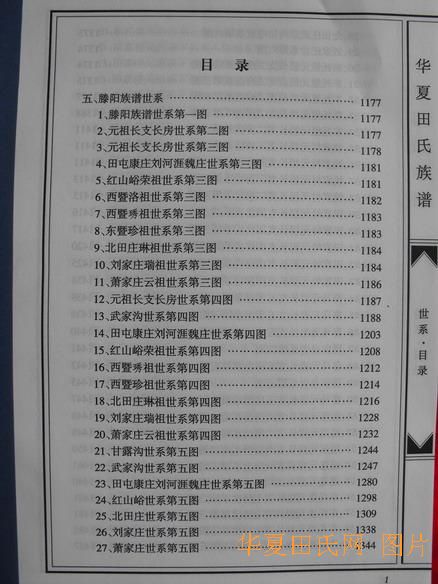 目录
五、滕阳族谱世系 1177
1、滕阳族谱世系第一图 1177
2、元祖长支长房世系第二图 1177
3、元祖长支长房世系第三图 1178
4、田屯康庄刘河涯魏庄世系第三图 1181
5、红山峪荣祖世系第三图 1181
6、西暨洛祖世系第三图 1182
7、西暨秀祖世系第三图 1183
8、东暨珍祖世系第三图 1183
9、北田庄琳祖世系第三图 1184
10、刘家庄瑞祖世系第三图 1184
11、萧家庄云祖世系第三图 1186
12、元祖长支长房世系第四图 1187
13、武家沟世系第四图 1188
14、田屯康庄刘河涯魏庄世系第四图 1203
15、红山峪荣祖世系第四图 1208
16、西暨秀祖世系第四图 1212
17、西暨珍祖世系第四图 1214
18、北田庄琳祖世系第四图 1216
19、刘家庄瑞祖世系第四图 1228
20、萧家庄云祖世系第四图 1232
21、甘露沟世系第五图 1244
22、武家沟世系第五图 1247
23、田屯康庄刘河涯魏庄世系第五图 1280
24、红山峪世系第五图 1298
25、北田庄世系第五图 1309
26、刘家庄世系第五图 1338
27、萧家庄世系第五图 1344
华夏田氏族谱
世系·目录
1
华夏田氏网 图片